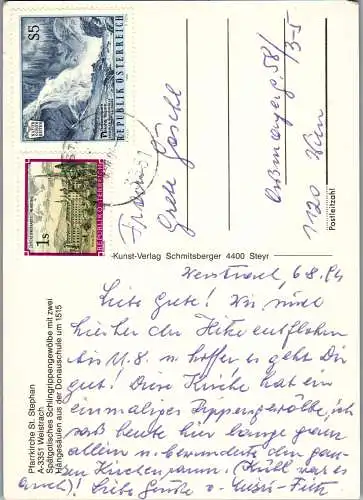 S5
REPUBLIK ÖSTERREICH
1s
REPUBLIK ÖSTERREICH
Frau
Grete Göschl
1120 Wien
/3-5
Postleitzahl
-Kunst-Verlag Schmitsberger 4400 Steyr
Pfarrkirche St. Stephan
A-3351 Weistrach
Spätgotisches Schlingrippengewölbe mit zwei
Hängesäulen aus der Donauschule um 1515
Weistrach, 6.8.94
Liebe Grete! Wir sind
hierher der Hitze entflohen
bis 11.8. u. hoffen es geht Dir
gut! Diese Kirche hat ein
einmaliges Rippengewölbe, ich
saß heute hier lange ganz
allein u. bewunderte den gan-
zen Kirchenraum. (Kühl war es
auch)! Liebe Grüße